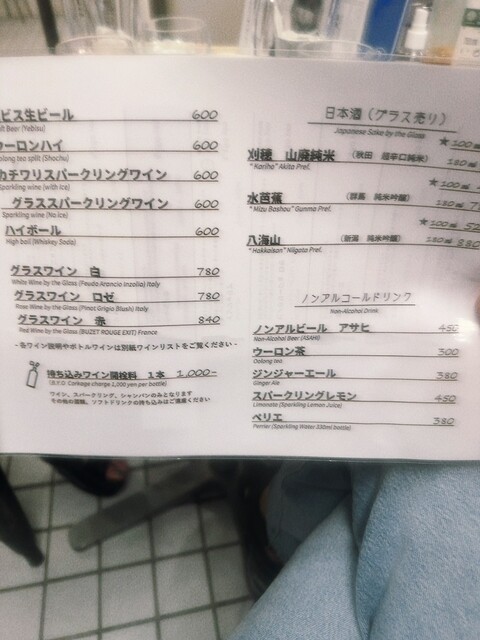 ビス生ビール 600
ft Beer (Yebisu)
ウーロンハイ 600
olong tea split (Shochu)
カチワリスパークリングワイン 600
Sparkling wine (with Ice)
グラススパークリングワイン 600
Sparkling wine (No ice)
ハイボール 600
High ball (Whiskey Soda)
グラスワイン 白 780
White Wine by the Glass (Feudo Arancio Inzolia) Italy
グラスワイン ロゼ 780
Rose Wine by the Glass (Pinot Grigio Blush) Italy
グラスワイン 赤 840
Red Wine by the Glass (BUZET ROUGE EXIT) France
- 各ワイン説明やボトルワインは別紙ワインリストをご覧ください -
持ち込みワイン開栓料 1本 1,000-
(B.Y.O Corkage charge 1,000 yen per bottle)
ワイン、スパークリング、シャンパンのみとなります
その他の酒類、ソフトドリンクの持ち込みはご遠慮ください
日本酒（グラス売り）
Japanese Sake by the Glass
★100
刈穂 山廃純米 （秋田 超辛口純米） 180ml
"Kariho" Akita Pref.
★100
水芭蕉 （群馬 純米吟醸） 180ml
"Mizu Bashou" Gunma Pref.
★100
八海山 （新潟 純米吟醸） 180ml 880
"Hakkaisan" Niigata Pref.
ノンアルコールドリンク
Non-Alcohol Drink
ノンアルビール アサヒ 450
Non-Alcohol Beer (ASAHI)
ウーロン茶 300
Oolong tea
ジンジャーエール 380
Ginger Ale
スパークリングレモン 450
Limonata (Sparkling Lemon Juice)
ペリエ 380
Perrier (Sparkling Water 330ml bottle)